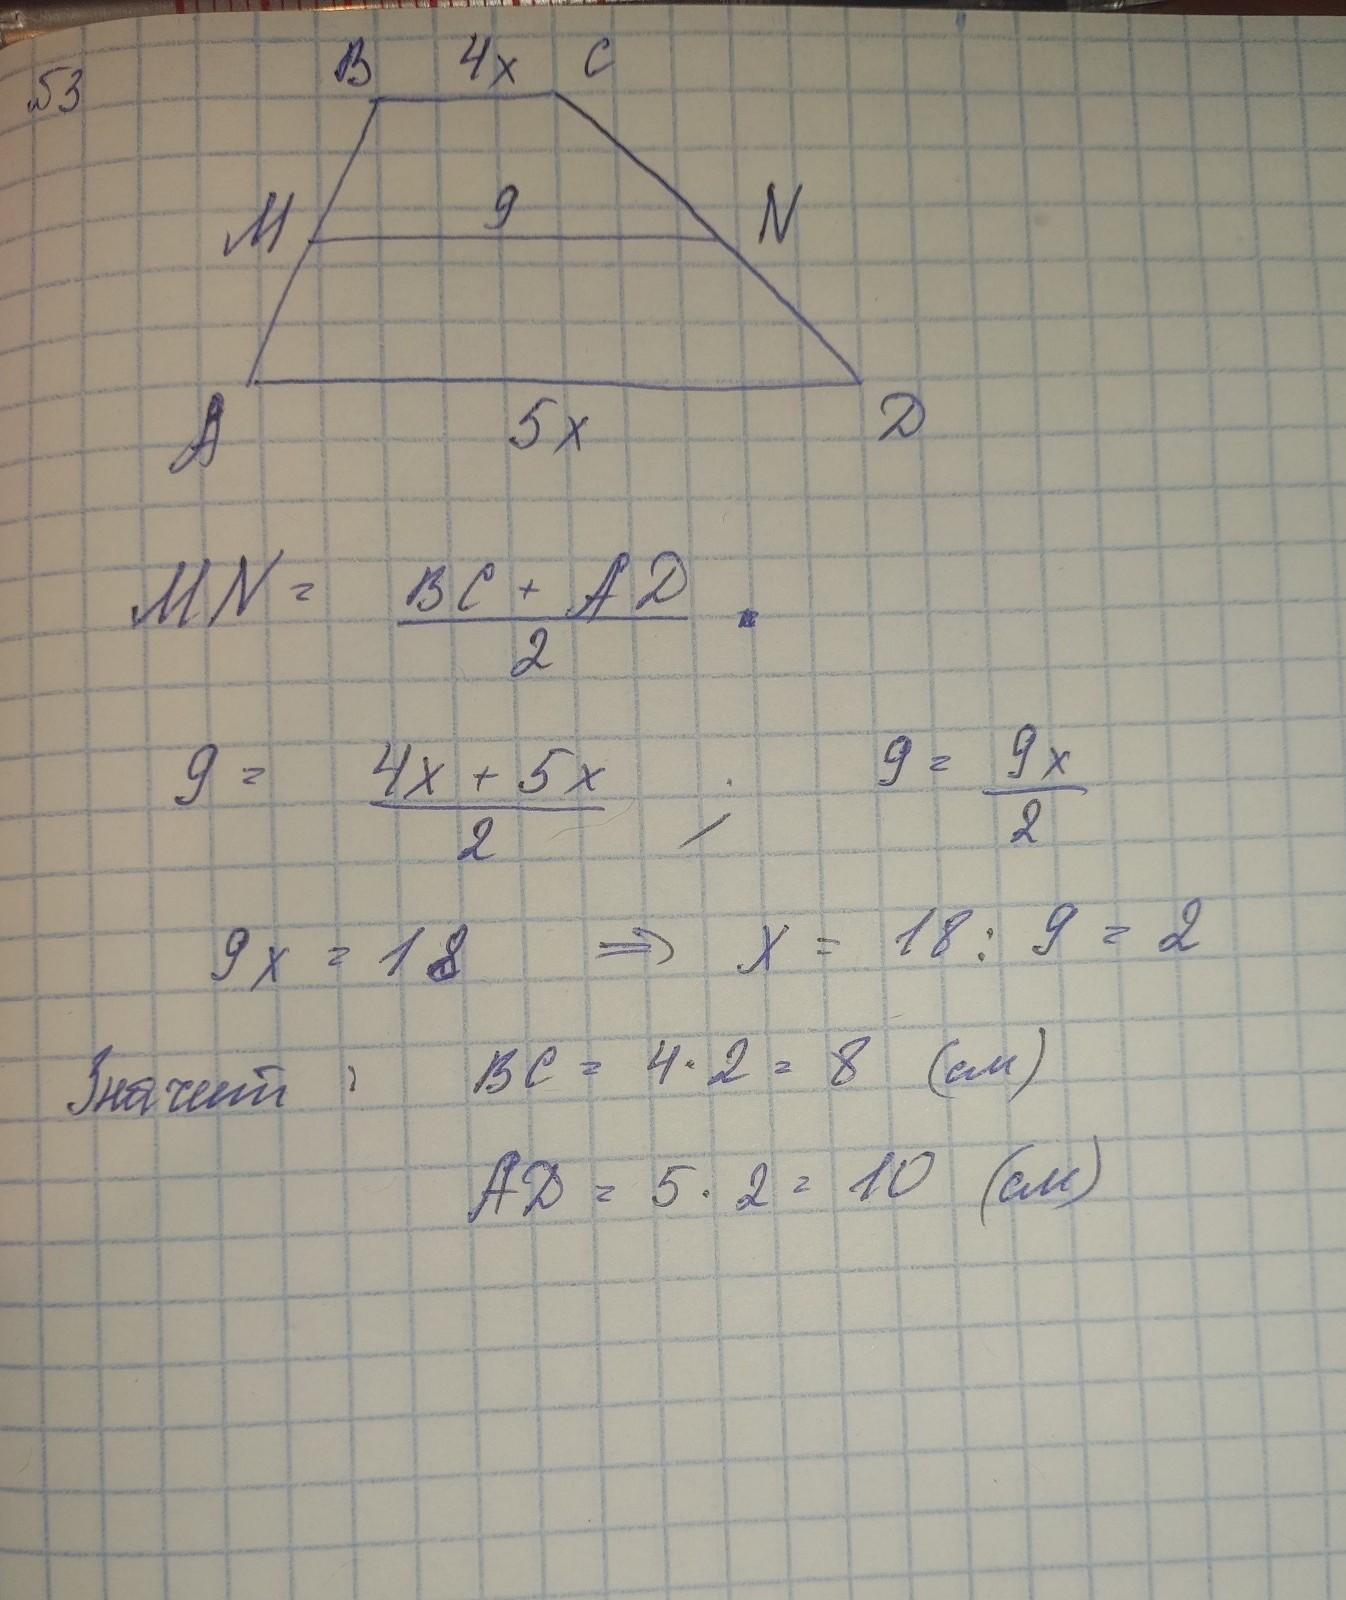 53
B 4x C
M 9 N
A 5x D
MN = (BC + AD)/2
9 = (4x + 5x)/2 ; 9 = 9x/2
9x = 18 ⇒ x = 18 : 9 = 2
Значит : BC = 4 · 2 = 8 (см)
AD = 5 · 2 = 10 (см)